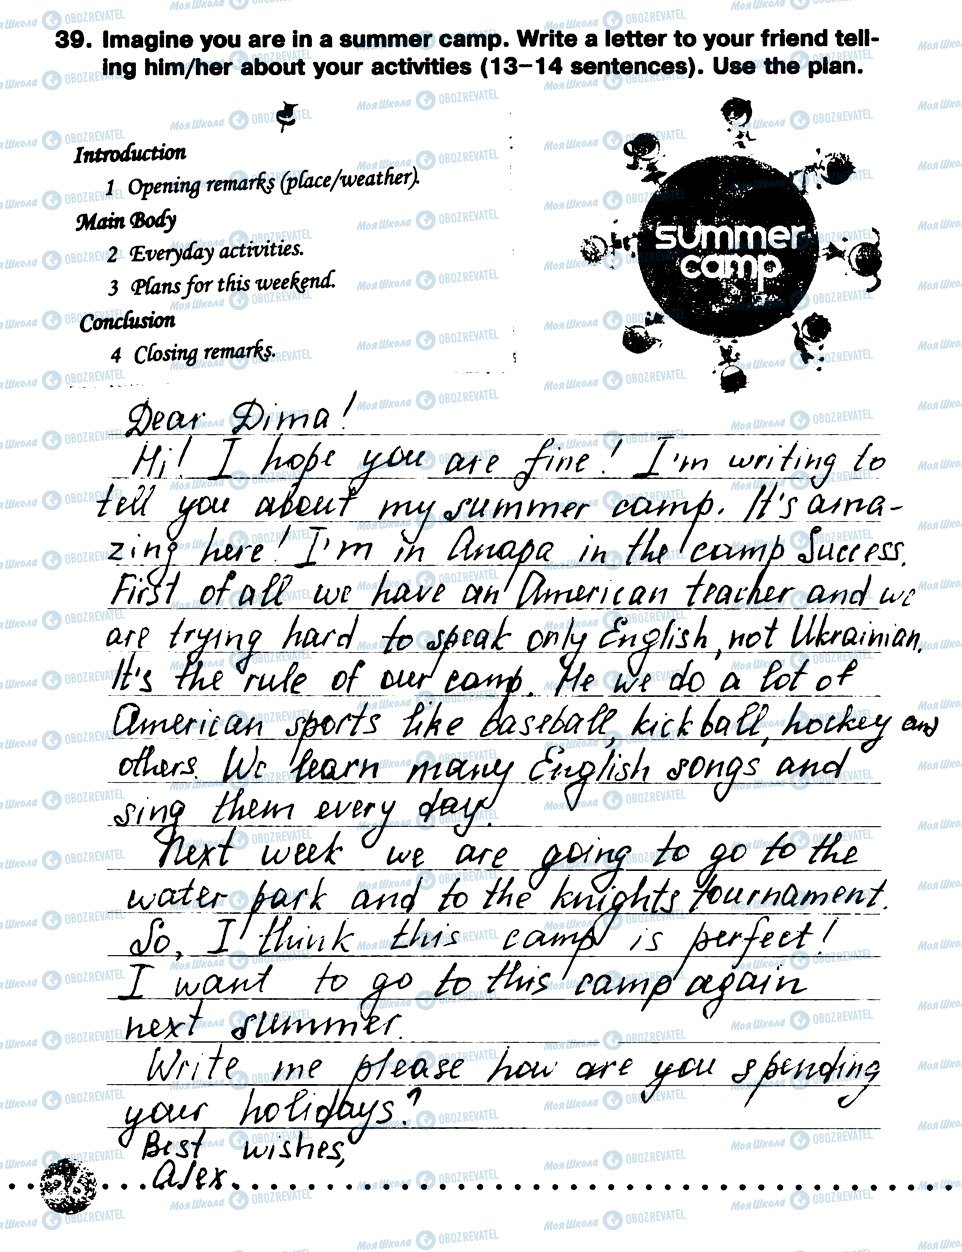 39. Imagine you are in a summer camp. Write a letter to your friend tell-
ing him/her about your activities (13–14 sentences). Use the plan.
Introduction
1 Opening remarks (place/weather).
Main Body
2 Everyday activities.
3 Plans for this weekend.
Conclusion
4 Closing remarks.
summer
camp
Dear Dima!
Hi! I hope you are fine! I'm writing to
tell you about my summer camp. It's ama-
zing here! I'm in Anapa in the camp Success.
First of all we have an American teacher and we
are trying hard to speak only English, not Ukrainian.
It's the rule of our camp. He we do a lot of
American sports like baseball, kickball, hockey and
others. We learn many English songs and
sing them every day.
Next week we are going to go to the
water park and to the knights tournament.
So, I think this camp is perfect!
I want to go to this camp again
next summer.
Write me please how are you spending
your holidays?
Best wishes,
Alex.
26
Моя Школа OBOZREVATEL